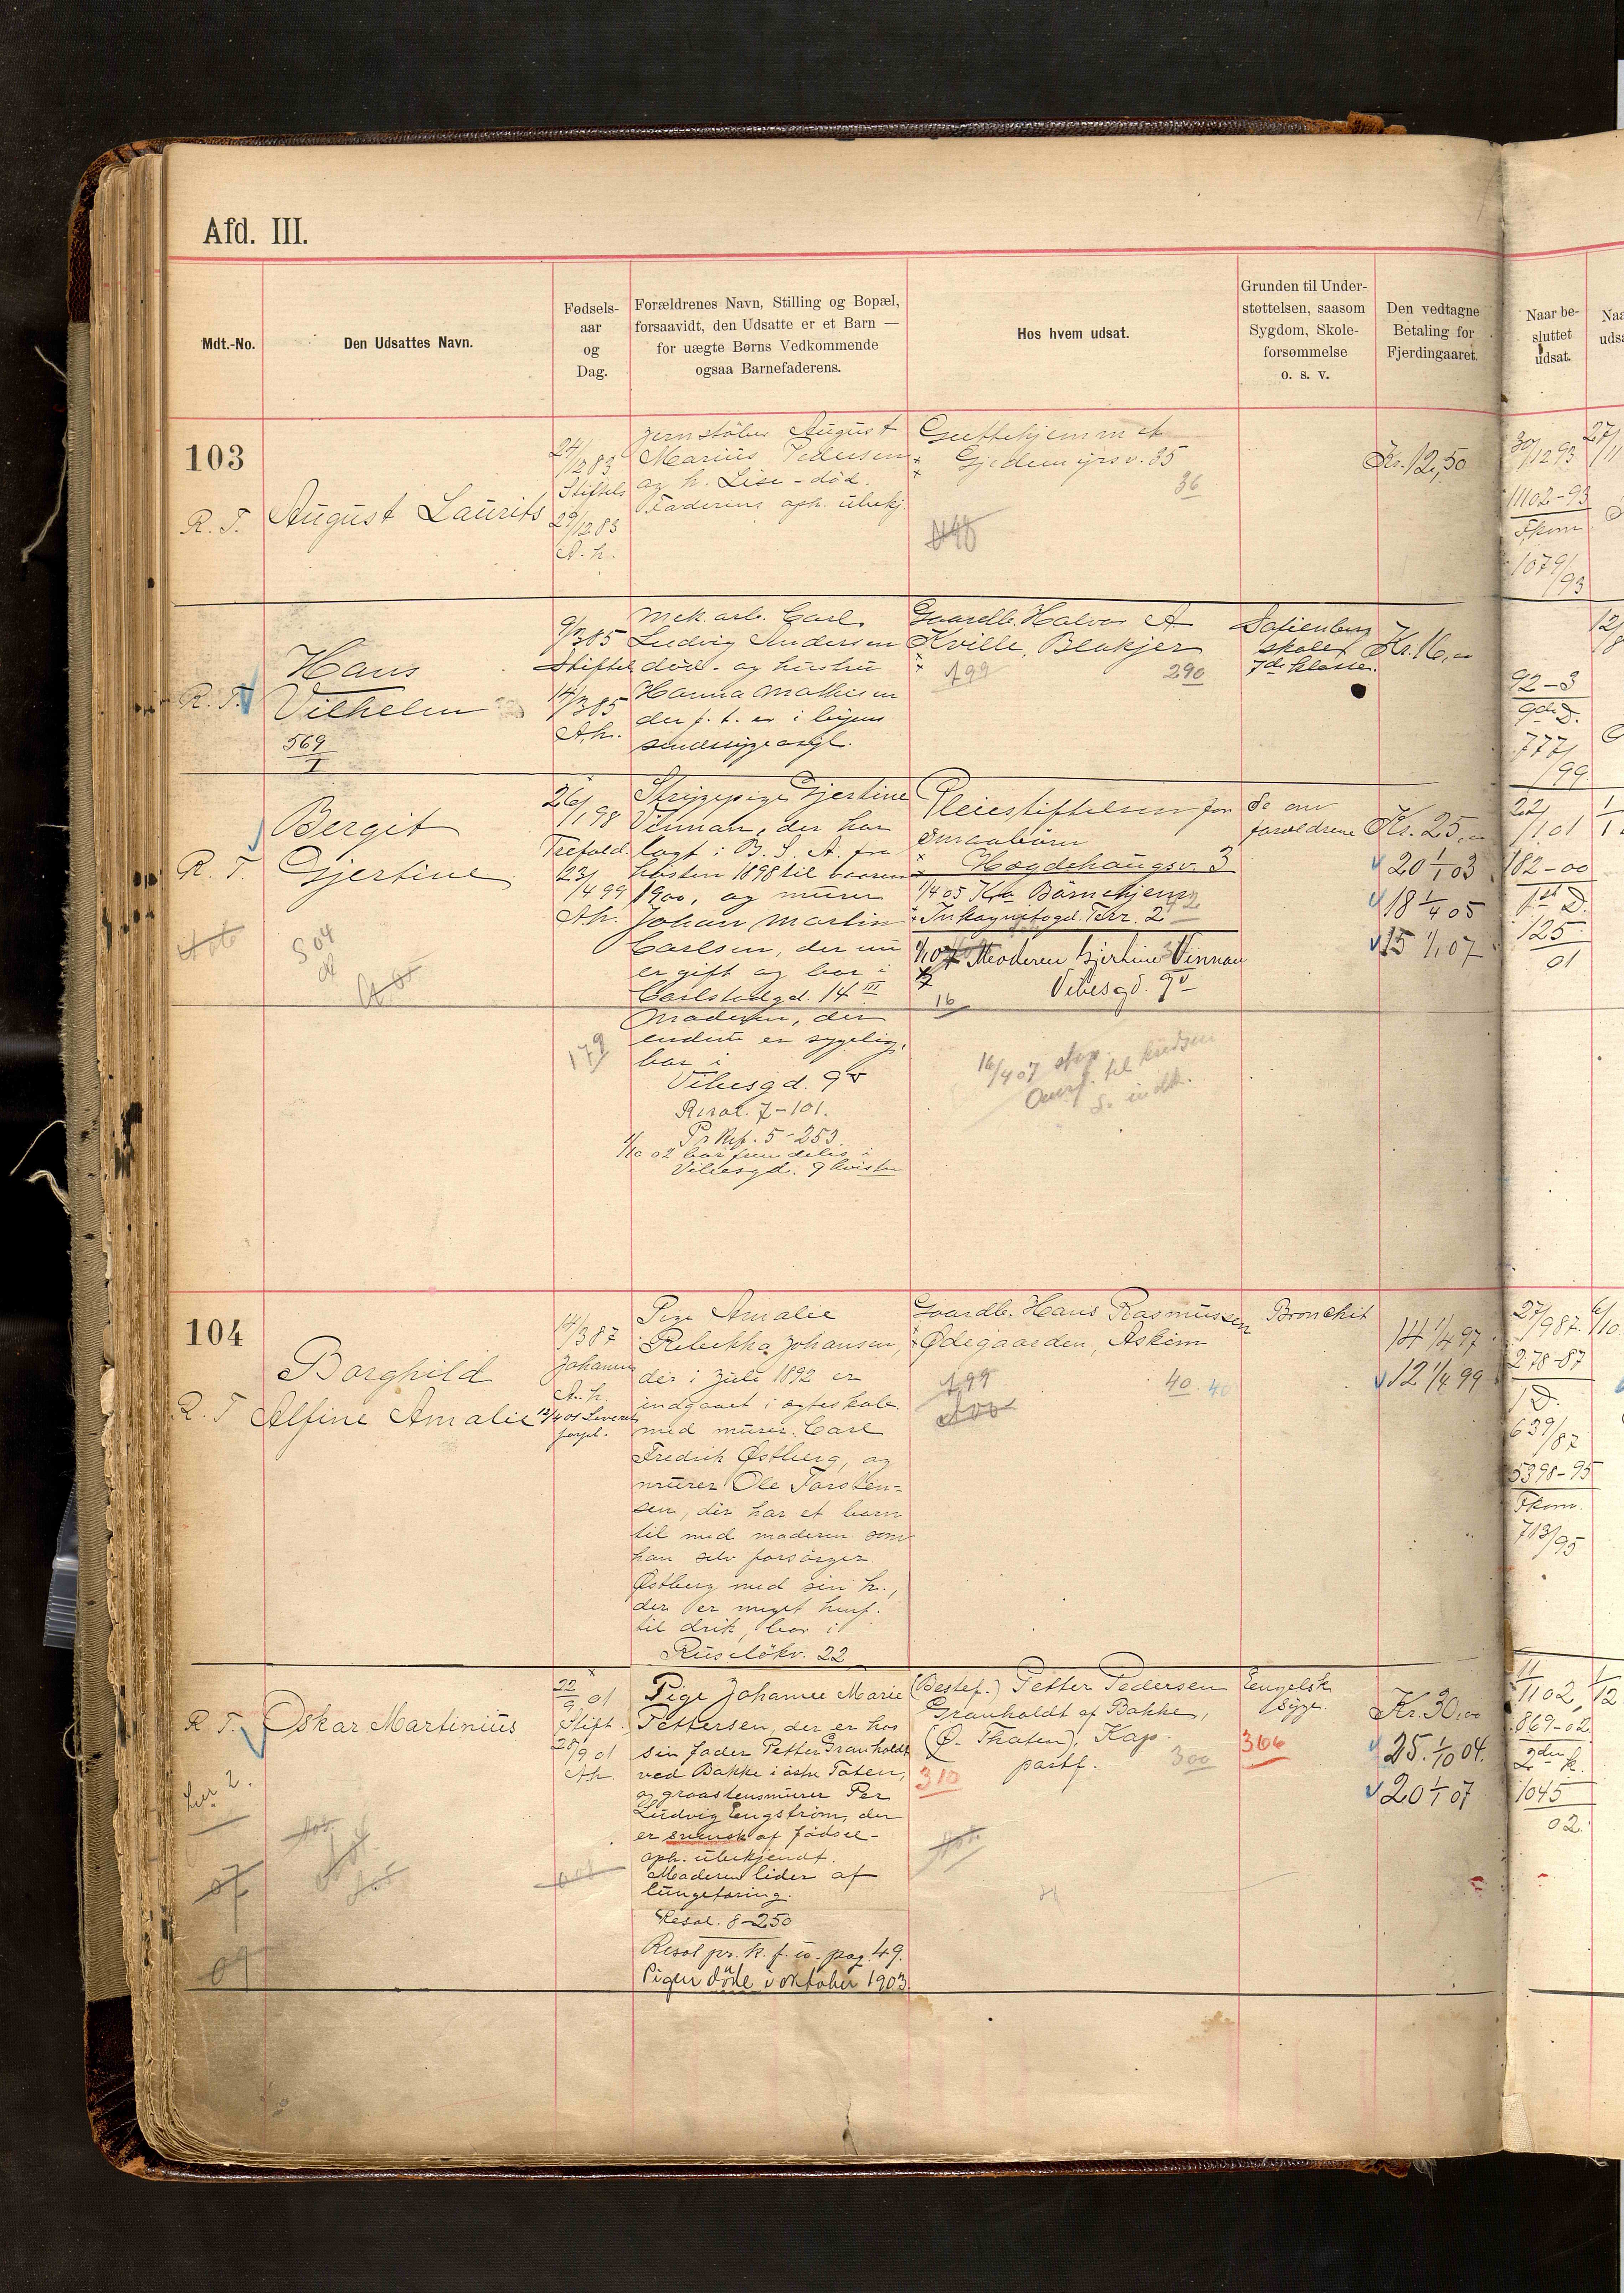 Afd. III.
Mdt.-No.
Den Udsattes Navn.
Fødsels-
aar
og
Dag.
Forældrenes Navn, Stilling og Bopæl,
forsaavidt, den Udsatte er et Barn —
for uægte Børns Vedkommende
ogsaa Barnefaderens.
Hos hvem udsat.
Grunden til Under-
støttelsen, saasom
Sygdom, Skole-
forsømmelse
o. s. v.
Den vedtagne
Betaling for
Fjerdingaaret.
Naar be-
sluttet
udsat.
103
R. T.
August Laurits
24/12 83
Stiftels
29/12 83
A. h.
Jernstøber August
Marius Pedersen
og h. Lise - død.
Faderens oph. ubekj.
Guttehjemmet
Gjedemyrsv. 35
36
Kr. 12,50
30/12 93
11102-93
Fkom
1079/93
R. T.
Hans
Vilhelm
569
I
9/3 85
Stiftel
14/3 85
A. h.
Mek. arb. Carl
Ludvig Andersen
død - og hustru
Hanna Mathisen
der f. t. er i byens
sindssygeasyl.
Gaardb. Halvor A
Kville, Blakjer
A 99
290
Sofienberg
skole
7de klasse.
Kr. 16,-
92-3
9de D.
777/
199
R. T.
Bergit
Gjertine
S 04
26/1 98
Trefold.
23/
4 99
A. h.
Strygepige Gjertine
Vinnan, der har
lagt i B. S. A. fra
høsten 1898 til vaaren
1900, og murer
Johan Martin
Carlsen, der nu
er gift og bor i
Carlstadgd. 14 III
Moderen, der
endnu er sygelig,
bor i
Vibesgd. 9 v
Resol. 7-101.
Pr Rep. 5-253.
1/10 02 bor fremdeles i
Vibesgd. 9 kvisten
179
Pleiestiftelsen for
smaabørn
Hægdehaugsv. 3
1/4 05 Kra Børnehjem
Inkognitogd. Terr. 2
1/1 07 Moderen Gjertine Vinnan
Vibesgd. 9 v
16
16/4 07 stop
Overf. til kredsen
S. indk.
Se om
forældrene
Kr. 25,-
20 1/1 03
18 1/4 05
15 1/1 07
22/1 01
182-00
1ste D.
125
01
104
R. T
Borghild
Alfine Amalie
14/3 87
Johannes
A. h.
Pige Amalie
Rebekka Johansen,
der i Juli 1892 er
indgaaet i ægteskab
med murer Carl
Fredrik Østberg, og
murer Ole Torsten-
sen, der har et barn
til med moderen som
han selv forsørger.
Østberg med sin h.,
der er meget henf.
til drik, bor i
Ruseløkv. 22
Gaardb. Hans Rasmussen
Ødegaarden, Askim
A 99
A 00
40. 40
Bronchit
14 1/4 97
12 1/4 99
27/9 87
278-87
1 D.
639/87
5398-95
Fkom.
713/95
R T.
Oskar Martinius
22/9 01
Stift.
28/9 01
Ah.
Pige Johanne Marie
Pettersen, der er hos
sin fader Petter Granholdt
ved Bakke i østre Toten,
og graastensmurer Per
Ludvig Engstrøm, der
er svensk af fødsel -
oph. ubekjendt.
Moderen lider af
lungetæring.
Resol. 8-250
Resol pr. k. f. u. pag. 49.
Pigen døde i oktober 1903.
(Bestef.) Petter Pedersen
Granholdt af Bakke,
(Ø. Thoten), Kap
postf.
300
310
306
Engelsk
syge
Kr. 30,00
25. 1/10 04.
20 1/1 07
11/11 02
869-02
2den k.
1045
02.
07
09